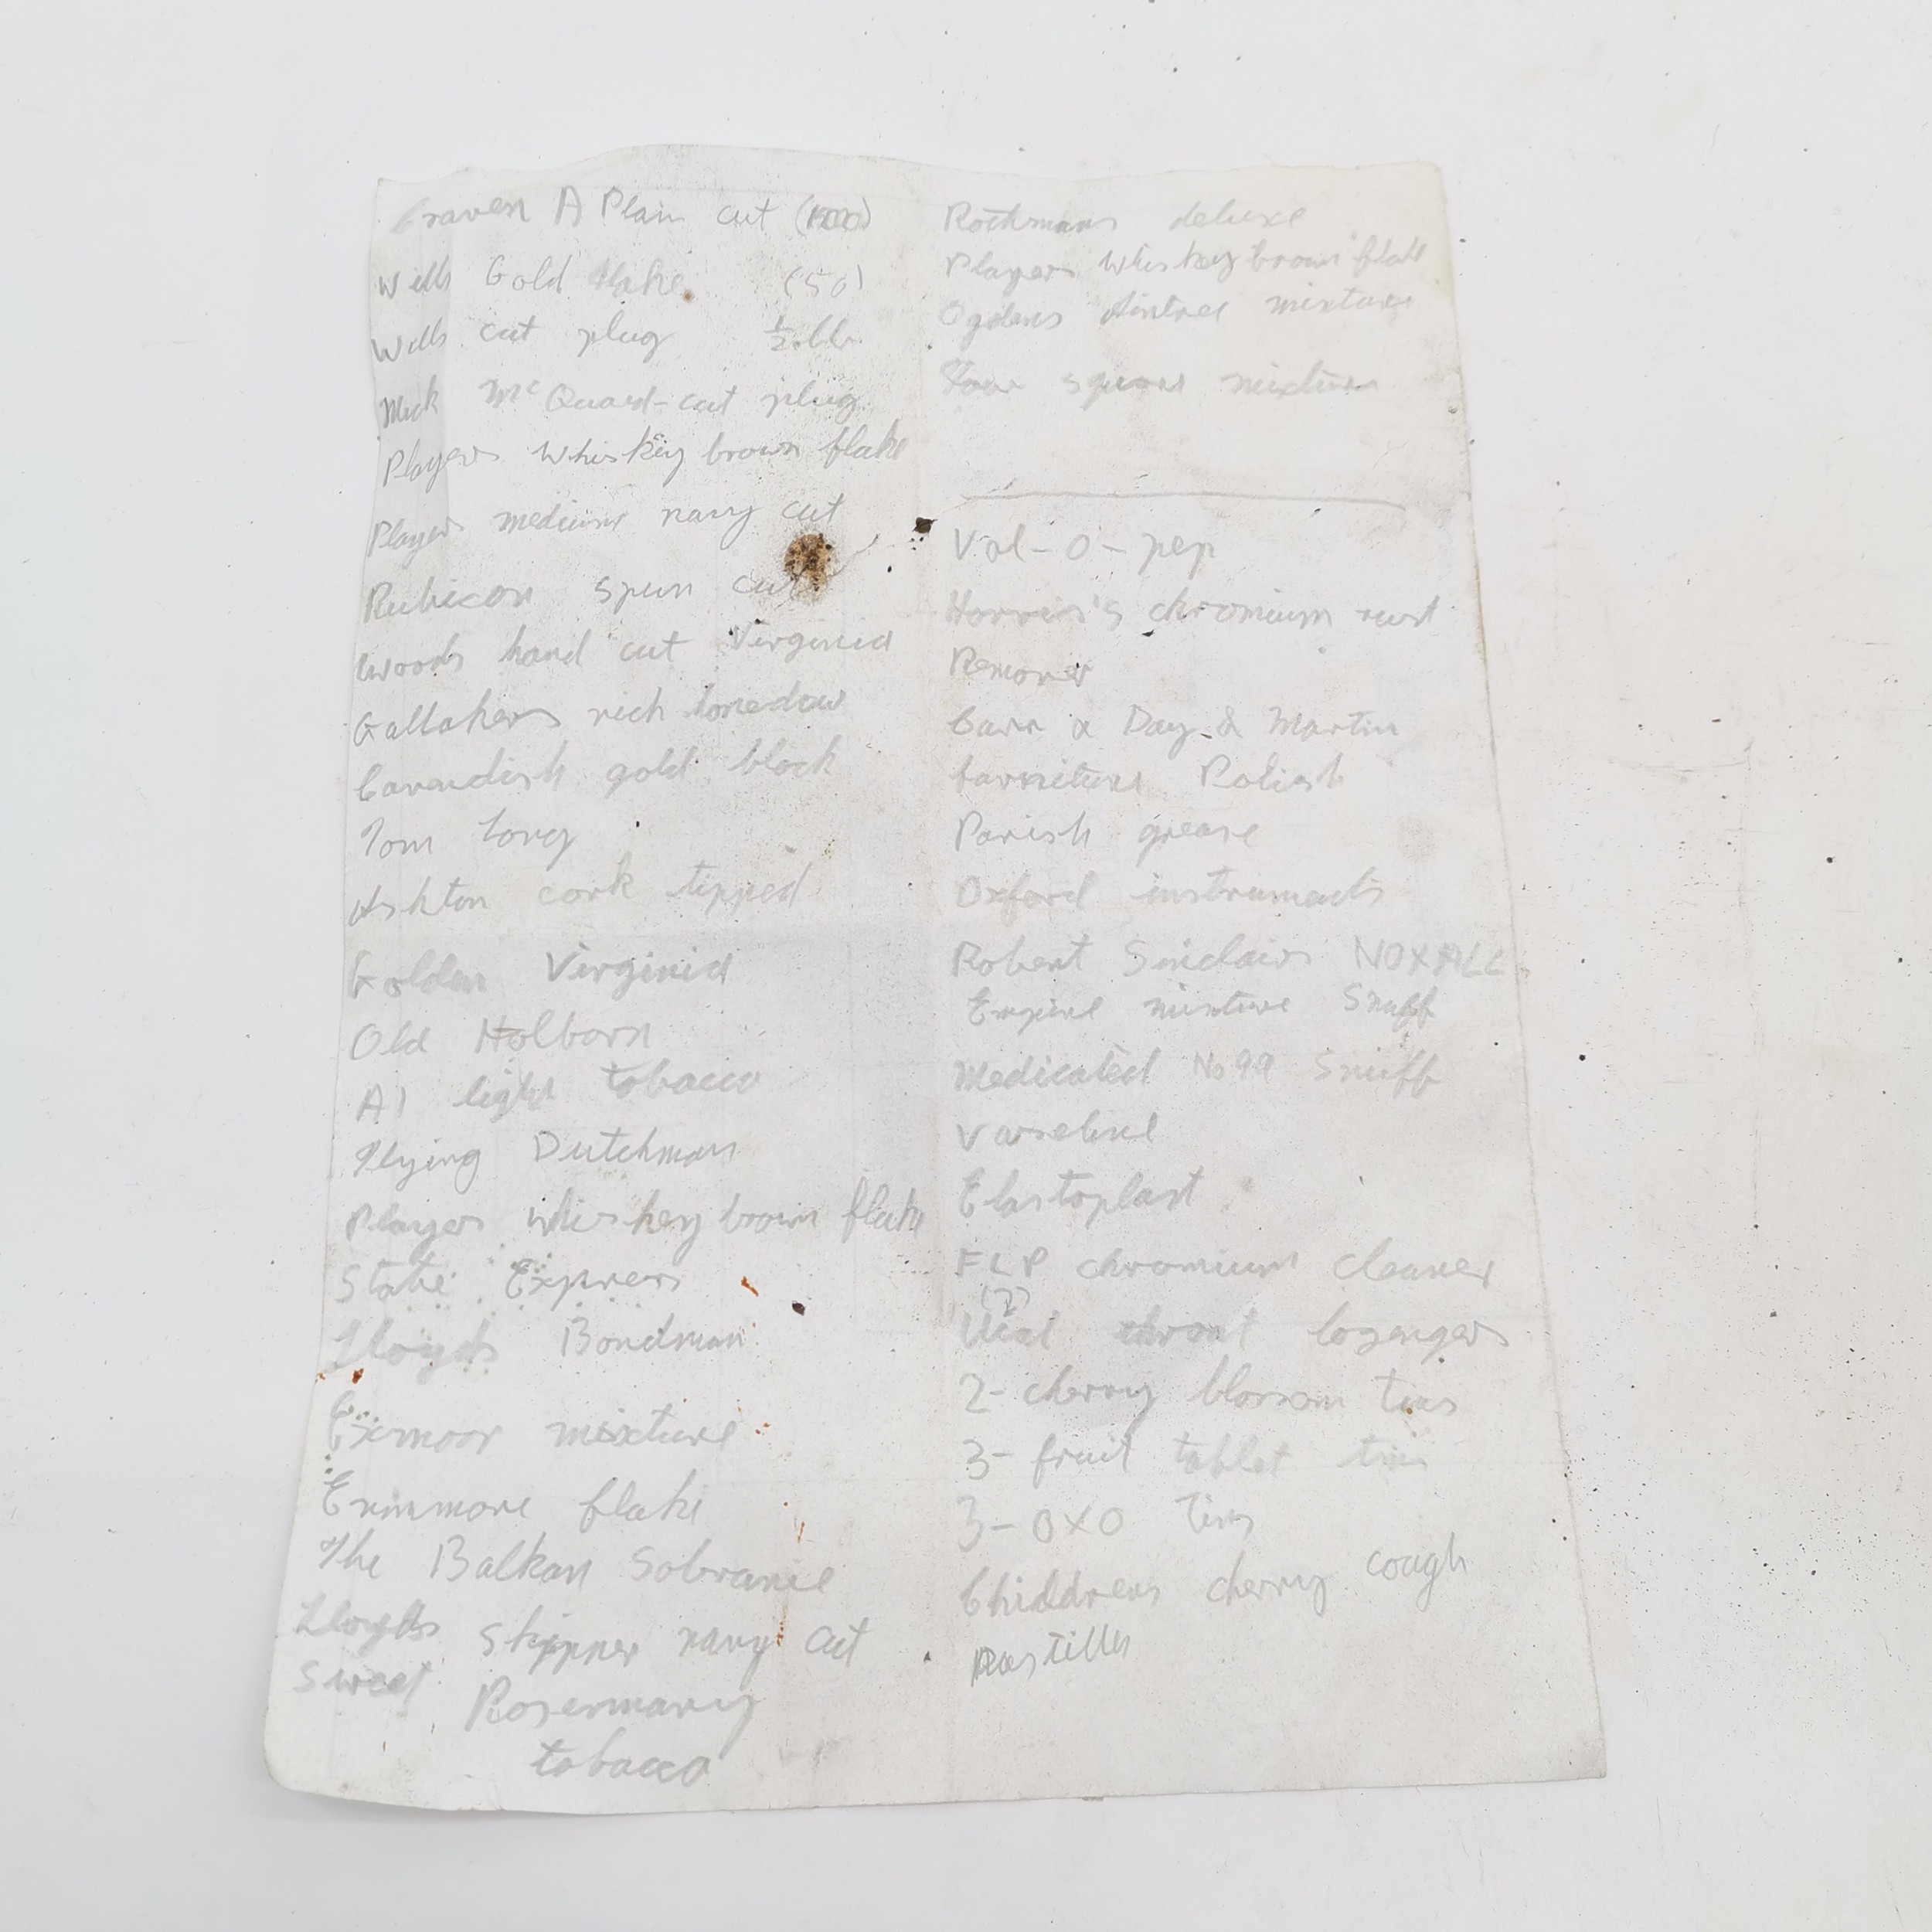 Craven A Plain cut
Wills Gold flake (50)
Wills cut plug ½ lb.
Mick McQuaid-cut plug
Players Whiskey brown flake
Players medium navy cut
Rubicon spun cut
Woods hand cut Virginia
Gallahers rich
Cavendish gold block
Tom Long
Ashton cork tipped
Golden Virginia
Old Holborn
A1 light tobacco
Flying Dutchman
Players whiskey brown flake
State Express
Lloyds Bondman
Exmoor mixture
Erinmore flake
The Balkan Sobranie
Lloyds Skipper navy cut
Sweet Rosemary
tobacco
Rothmans deluxe
Players Whiskey brown flake
Ogdens mixture
Four square mixture
Val-O-pep
Harris's chromium rust
Remover
Carr & Day & Martin
furniture Polish
Parish grease
Oxford instruments
Robert Sinclairs
Empire mixture Snuff
Medicated No 99 Snuff
Varseline
Elastoplast
chromium cleaner
(?)
throat lozenges
2- cherry blossom tins
3- fruit tablet tins
3- OXO Tins
Childrens cherry cough
pastilles